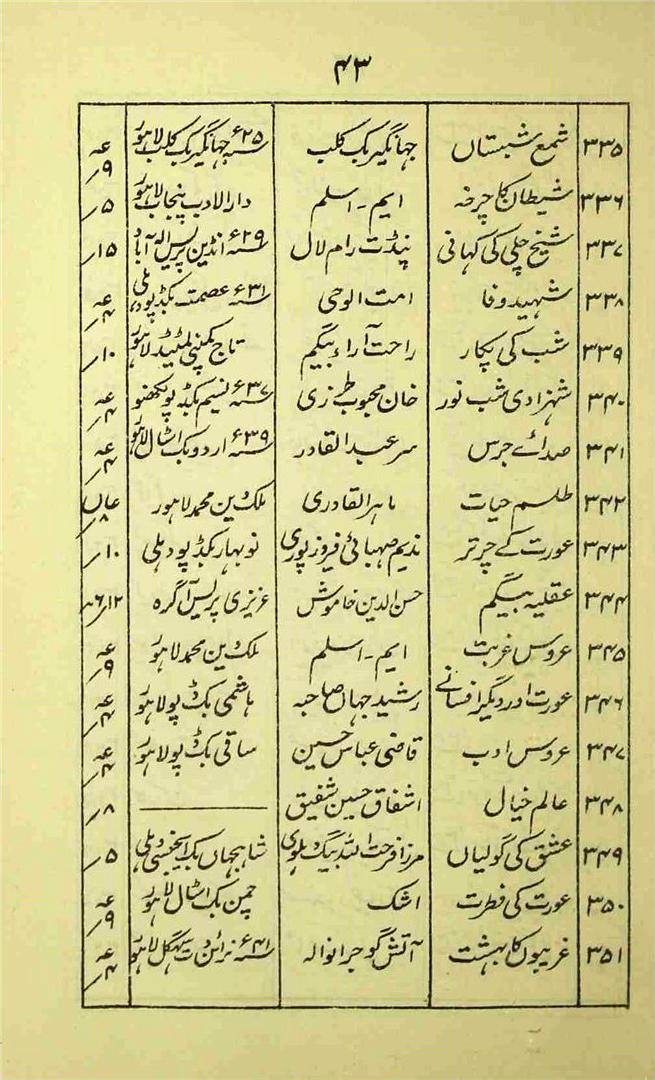 ۴۳
۳۳۵ شمع شبستاں جہانگیر بک کلب ۶۲۵ء جہانگیر بک کلب لاہور
۳۳۶ شیطان کا چرخہ ایم۔اسلم دارالادب پنجاب لاہور ۵؍
۳۳۷ شیخ چلی کی کہانی پنڈت رام لال ۶۲۹ء انڈین پریس الہ آباد ۱۵؍
۳۳۸ شہید وفا امت الوحی ۶۳۱ء عصمت بکڈپو دہلی
۳۳۹ شب کی پکار راحت آراء بیگم تاج کمپنی لمٹیڈ لاہور ۱۰؍
۳۴۰ شہزادی شب نور خان محبوب طرزی ۶۳۷ء نسیم بکڈپو لکھنؤ
۳۴۱ صدائے جرس سر عبدالقادر ۶۳۹ء اردو بک اسٹال لاہور
۳۴۲ طلسم حیات ماہر القادری ملک دین محمد لاہور
۳۴۳ عورت کے چرتر ندیم صہبائی فیروزپوری نوبہار بکڈپو دہلی ۱۰؍
۳۴۴ عقلیہ بیگم حسن الدین خاموش عزیزی پریس آگرہ
۳۴۵ عروس غربت ایم۔اسلم ملک دین محمد لاہور
۳۴۶ عورت اور دیگر افسانے رشید جہاں صاحبہ ہاشمی بک ڈپو لاہور
۳۴۷ عروس ادب قاضی عباس حسین ساقی بک ڈپو لاہور
۳۴۸ عالم خیال اشفاق حسین شفیق ——— ۸؍
۳۴۹ عشق کی گولیاں مرزا فرحت اللہ بیگ دہلوی شاہجہاں بک ایجنسی دہلی ۵؍
۳۵۰ عورت کی فطرت اشک چمن بک اسٹال لاہور
۳۵۱ غریبوں کا بہشت آتش گوجرانوالہ ۶۴۱ء نرائن دت سہگل لاہور